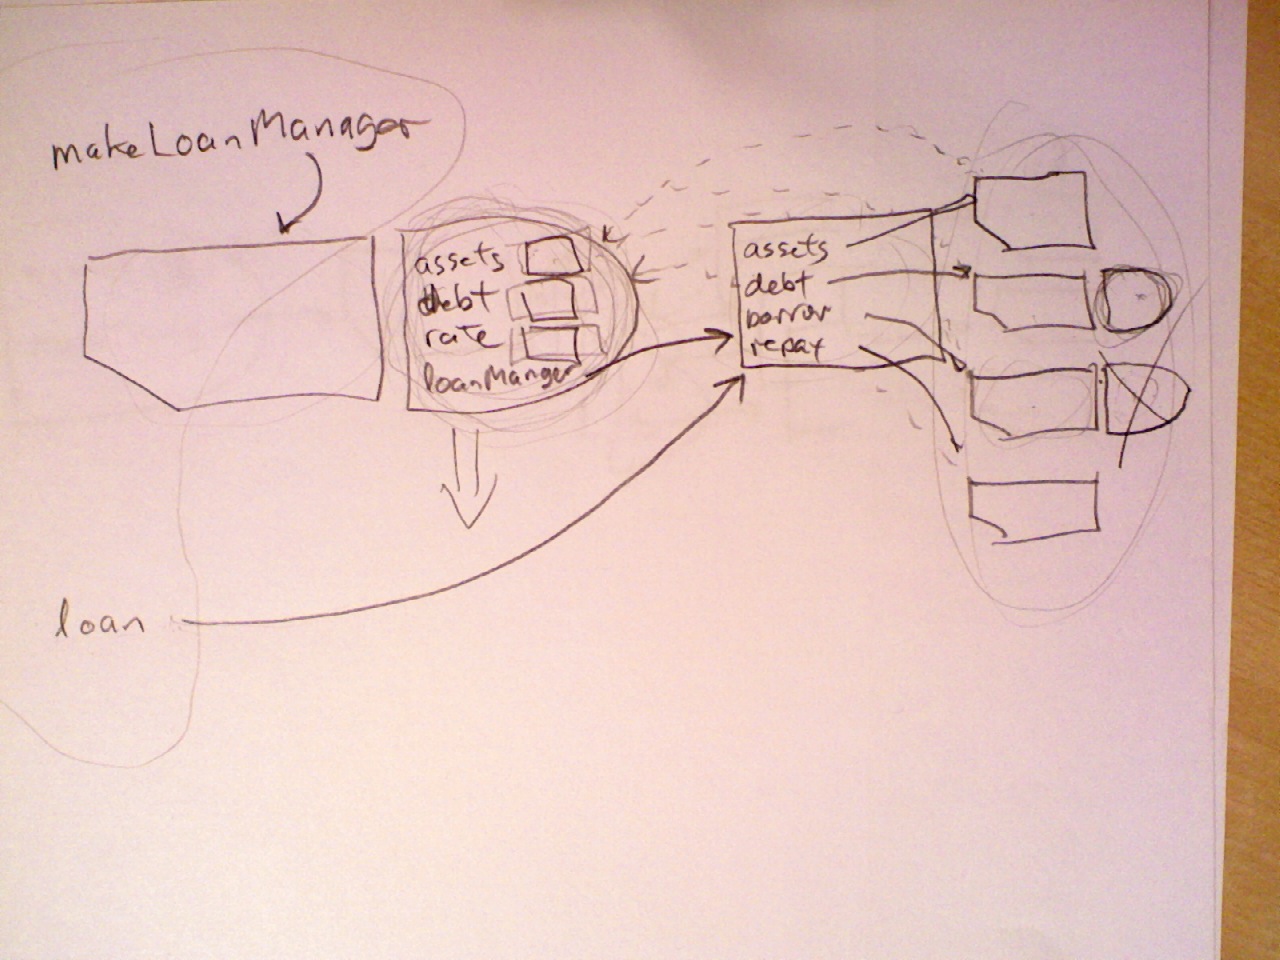 makeLoanManager
assets
debt
rate
loanManger
assets
debt
borrow
repay
loan